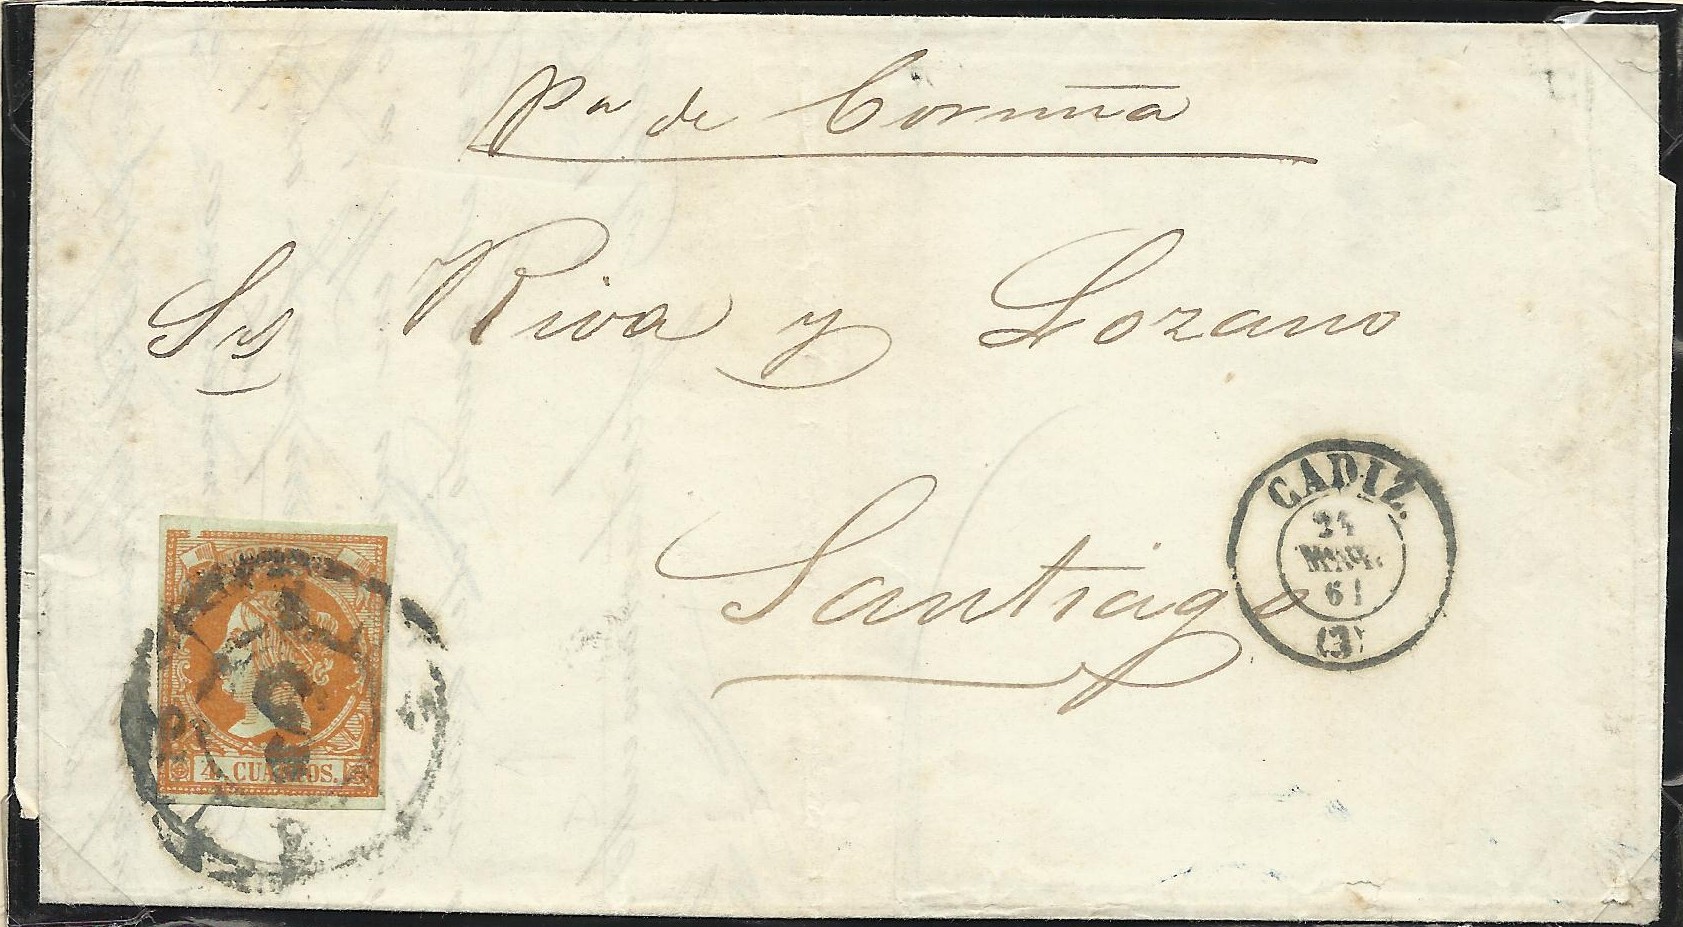 Pa de Coruña
Srs Riva y Lozano
Santiago
CADIZ.
24
MAY.
61
(3)
4 CUARTOS.